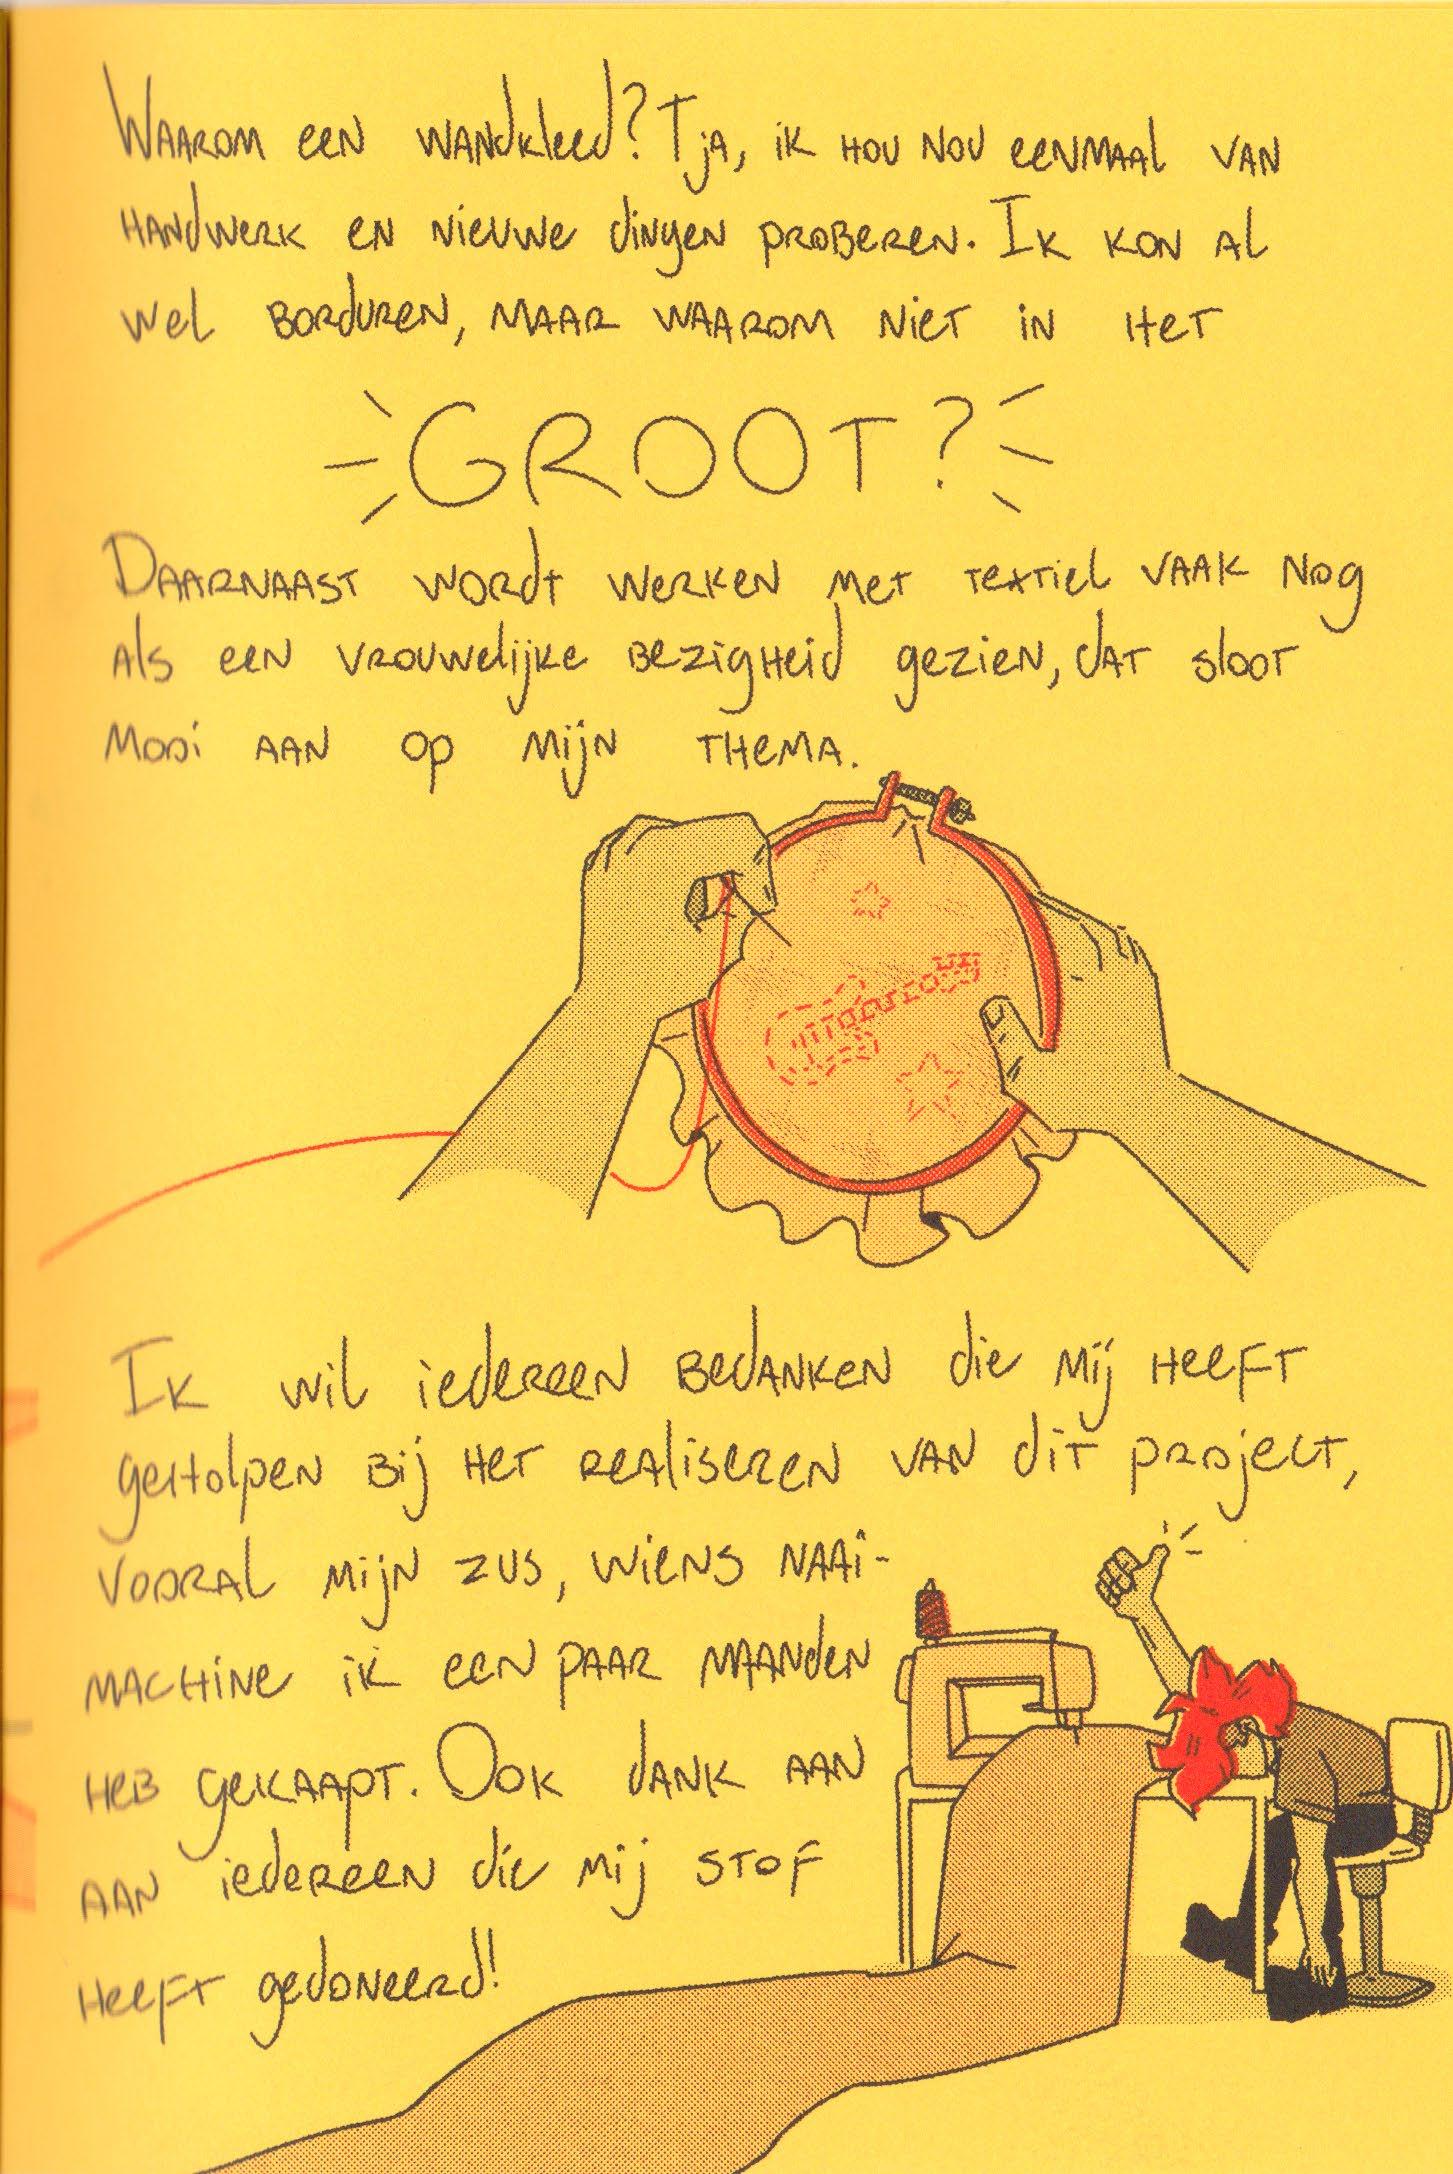 Waarom een wandkleed? Tja, ik hou nou eenmaal van
handwerk en nieuwe dingen proberen. Ik kon al
wel borduren, maar waarom niet in het
GROOT?
Daarnaast wordt werken met textiel vaak nog
als een vrouwelijke bezigheid gezien, dat sloot
mooi aan op mijn thema.
Ik wil iedereen bedanken die mij heeft
geholpen bij het realiseren van dit project,
vooral mijn zus, wiens naai-
machine ik een paar maanden
heb gekaapt. Ook dank aan
aan iedereen die mij stof
heeft gedoneerd!